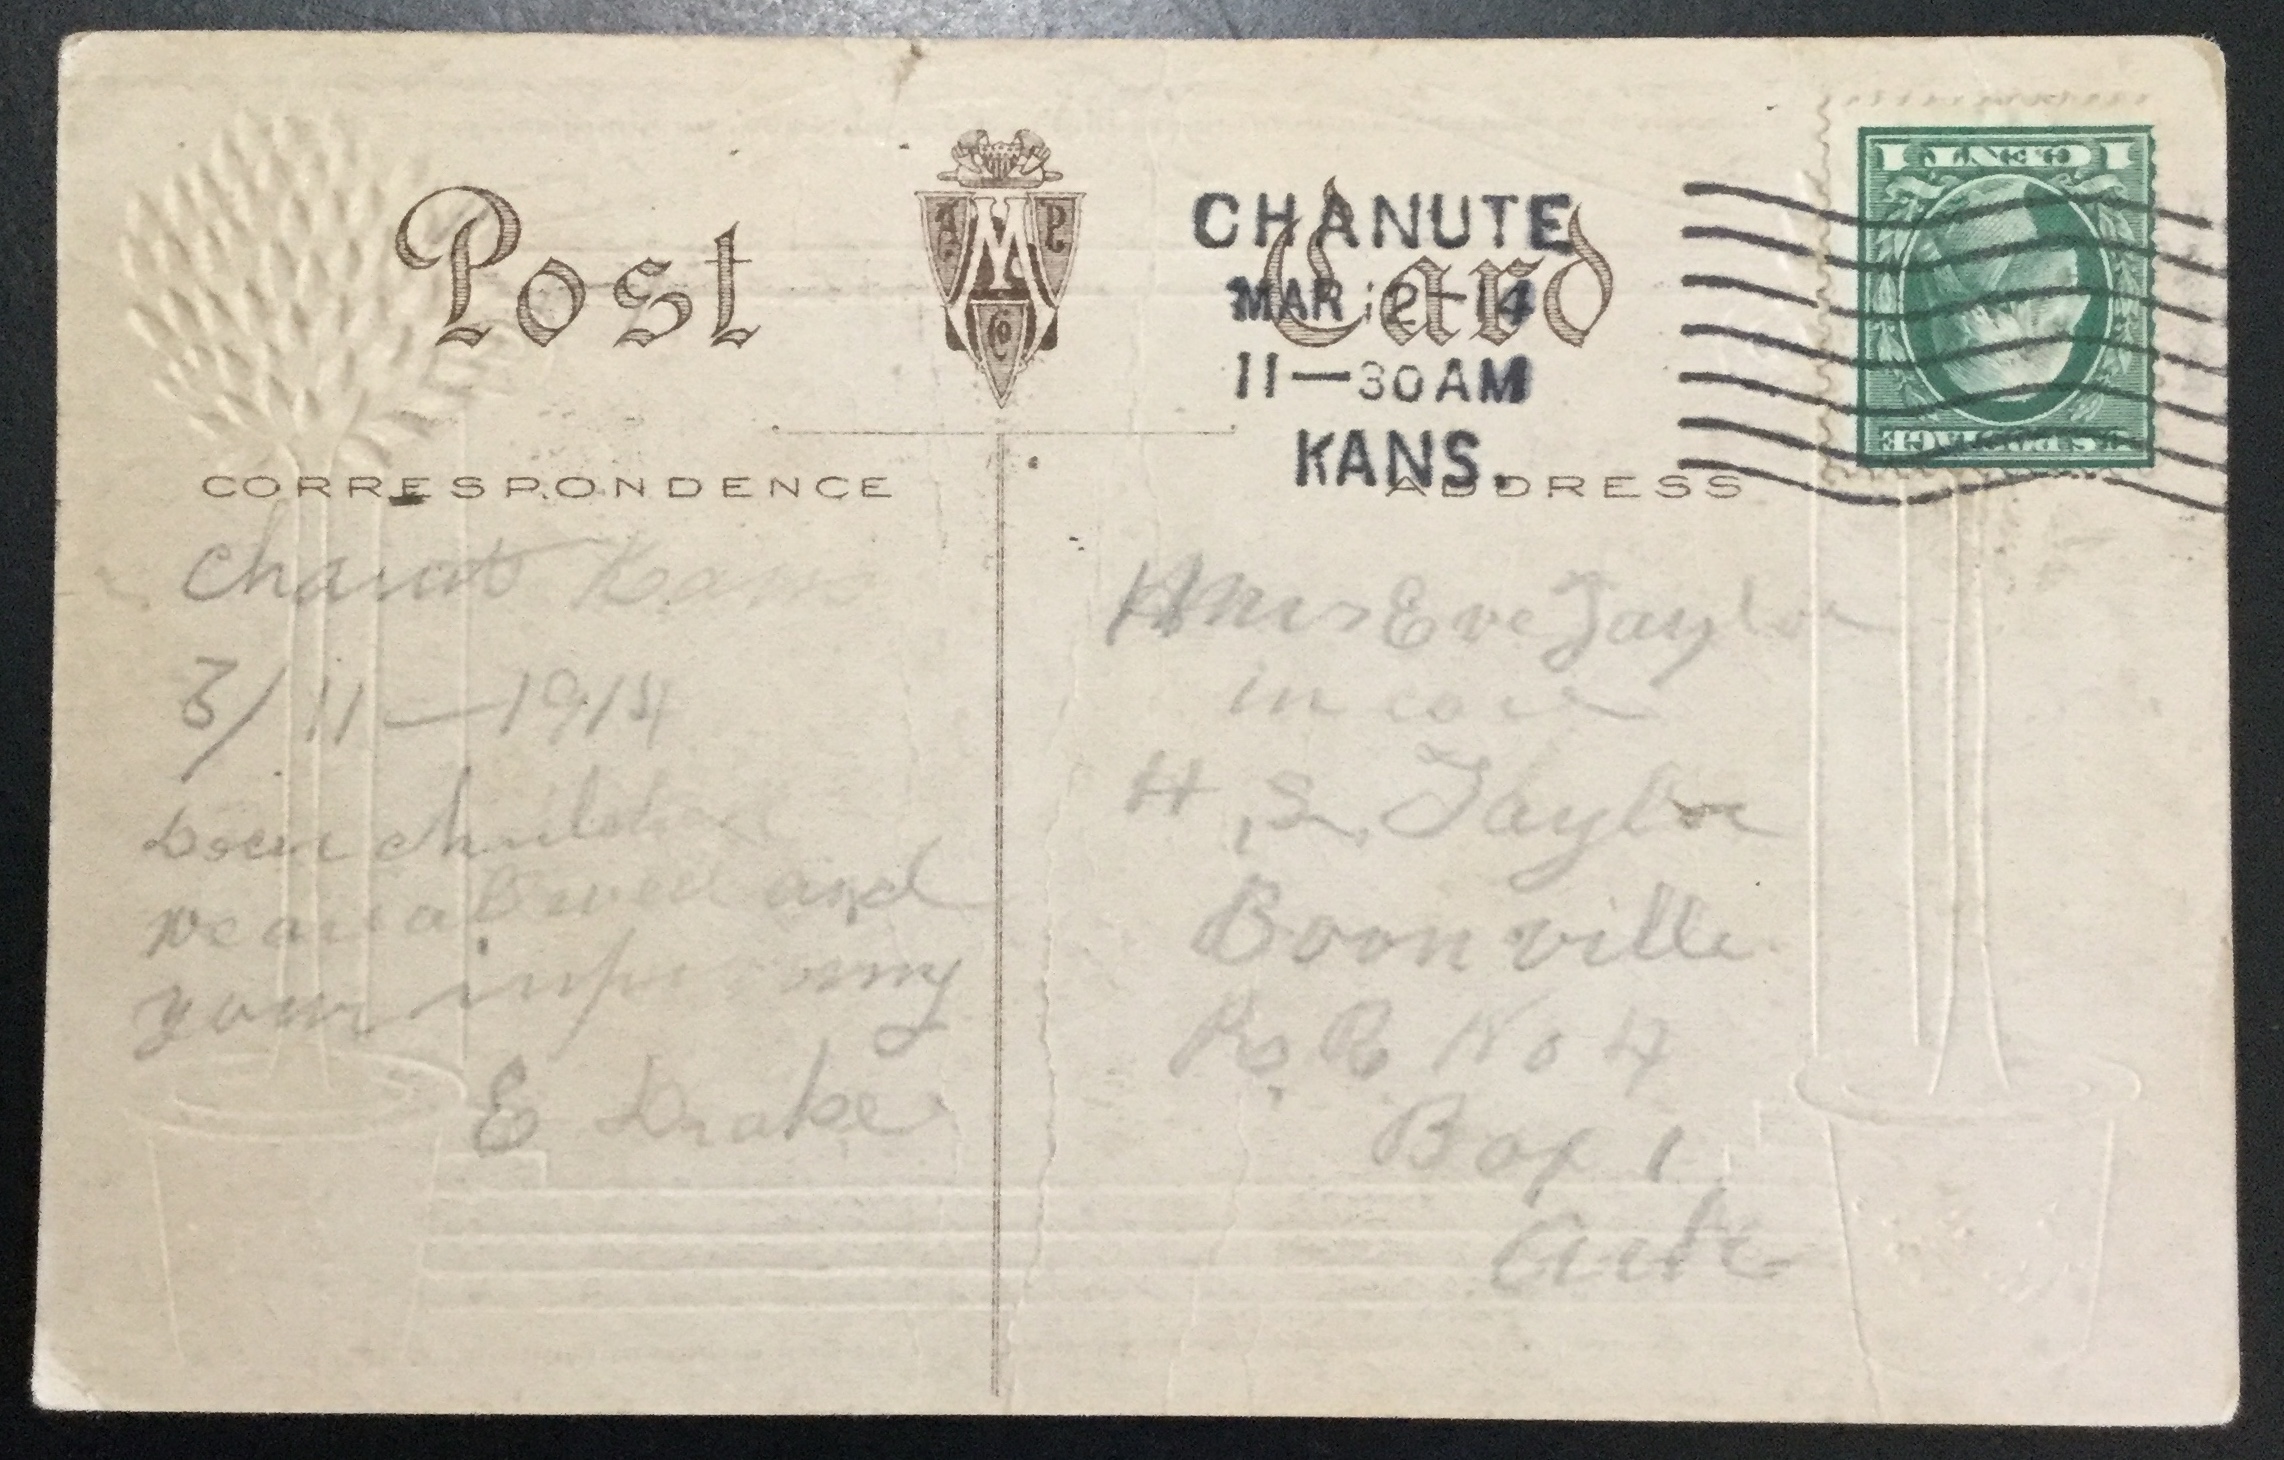 Post Card
A M P Co
CHANUTE
MAR 12 14
11—30AM
KANS.
1 CENT 1
U.S. POSTAGE
CORRESPONDENCE
ADDRESS
Chanut Kans
3/11—1914
Dear children
we are all well and
your
E Drake
Mrs Eve Taylor
in care
H. S. Taylor
Boonville
R R No 4
Box 1